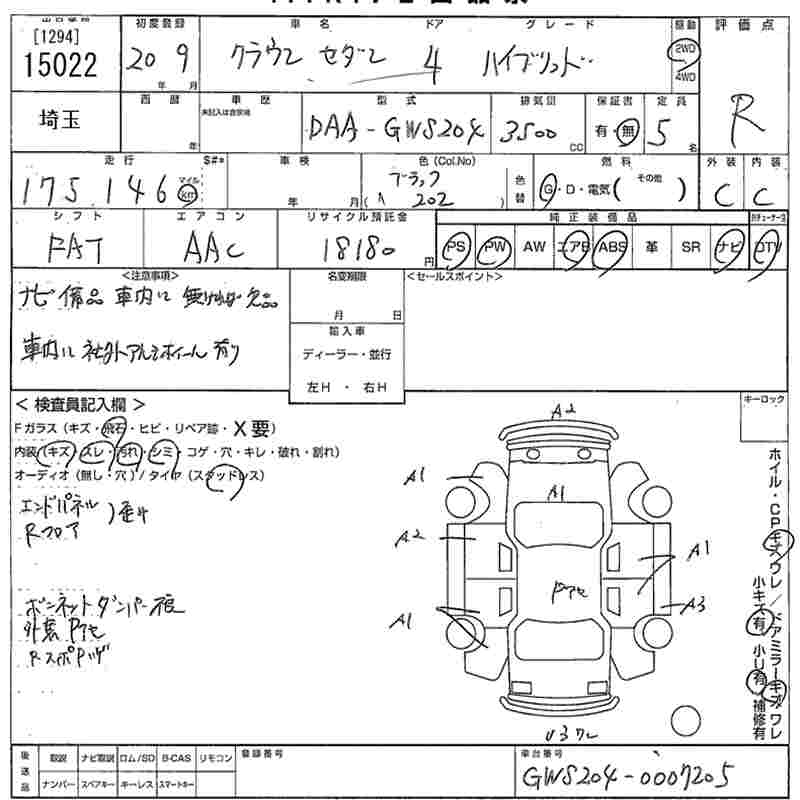 [1294]
15022
初度登録 車名 ドア グレード 駆動 評価点
20 9 クラウン セダン 4 ハイブリッド 2WD 4WD
年 月
R
埼玉
西暦 車歴 型式 排気量 保証書 定員
未記入は自家用
DAA-GWS204 3500 CC 有・無 5 名
年
走行 S#* 車検 色(Col.No) 燃料 外装 内装
175,146 マイル km 年 月 ブラック (A 202 ) 色替 G・D・電気( その他 ) C C
シフト エアコン リサイクル預託金 純正装備品
FAT AAC 18180 円 PS PW AW エアB ABS 革 SR ナビ DTV
<注意事項> 名変期限 <セールスポイント>
ナビ備品 車内に 無ければ欠品
月 日
車内に 社外アルミホイール 有り
輸入車
ディーラー・並行
左H ・ 右H
< 検査員記入欄 >
キーロック
Fガラス (キズ・飛石・ヒビ・リペア跡・X要)
内装 (キズ・スレ・汚れ・シミ・コゲ・穴・キレ・破れ・割れ)
オーディオ (無し・穴) / タイヤ (スタッドレス)
エンドパネル
Rフロア
ボンネットダンパー不良
外装 Pアセ
A2
A1
A1
A2
A1
Pアセ
A1
A3
U3ワレ
ホイル・CPキズワレ/ドアミラーキズワレ
小キズ有 小U有 補修有
後送品 取説 ナビ取説 ロム/SD B-CAS リモコン 登録番号 車台番号
ナンバー スペアキー キーレス スマートキー GWS204-0007205